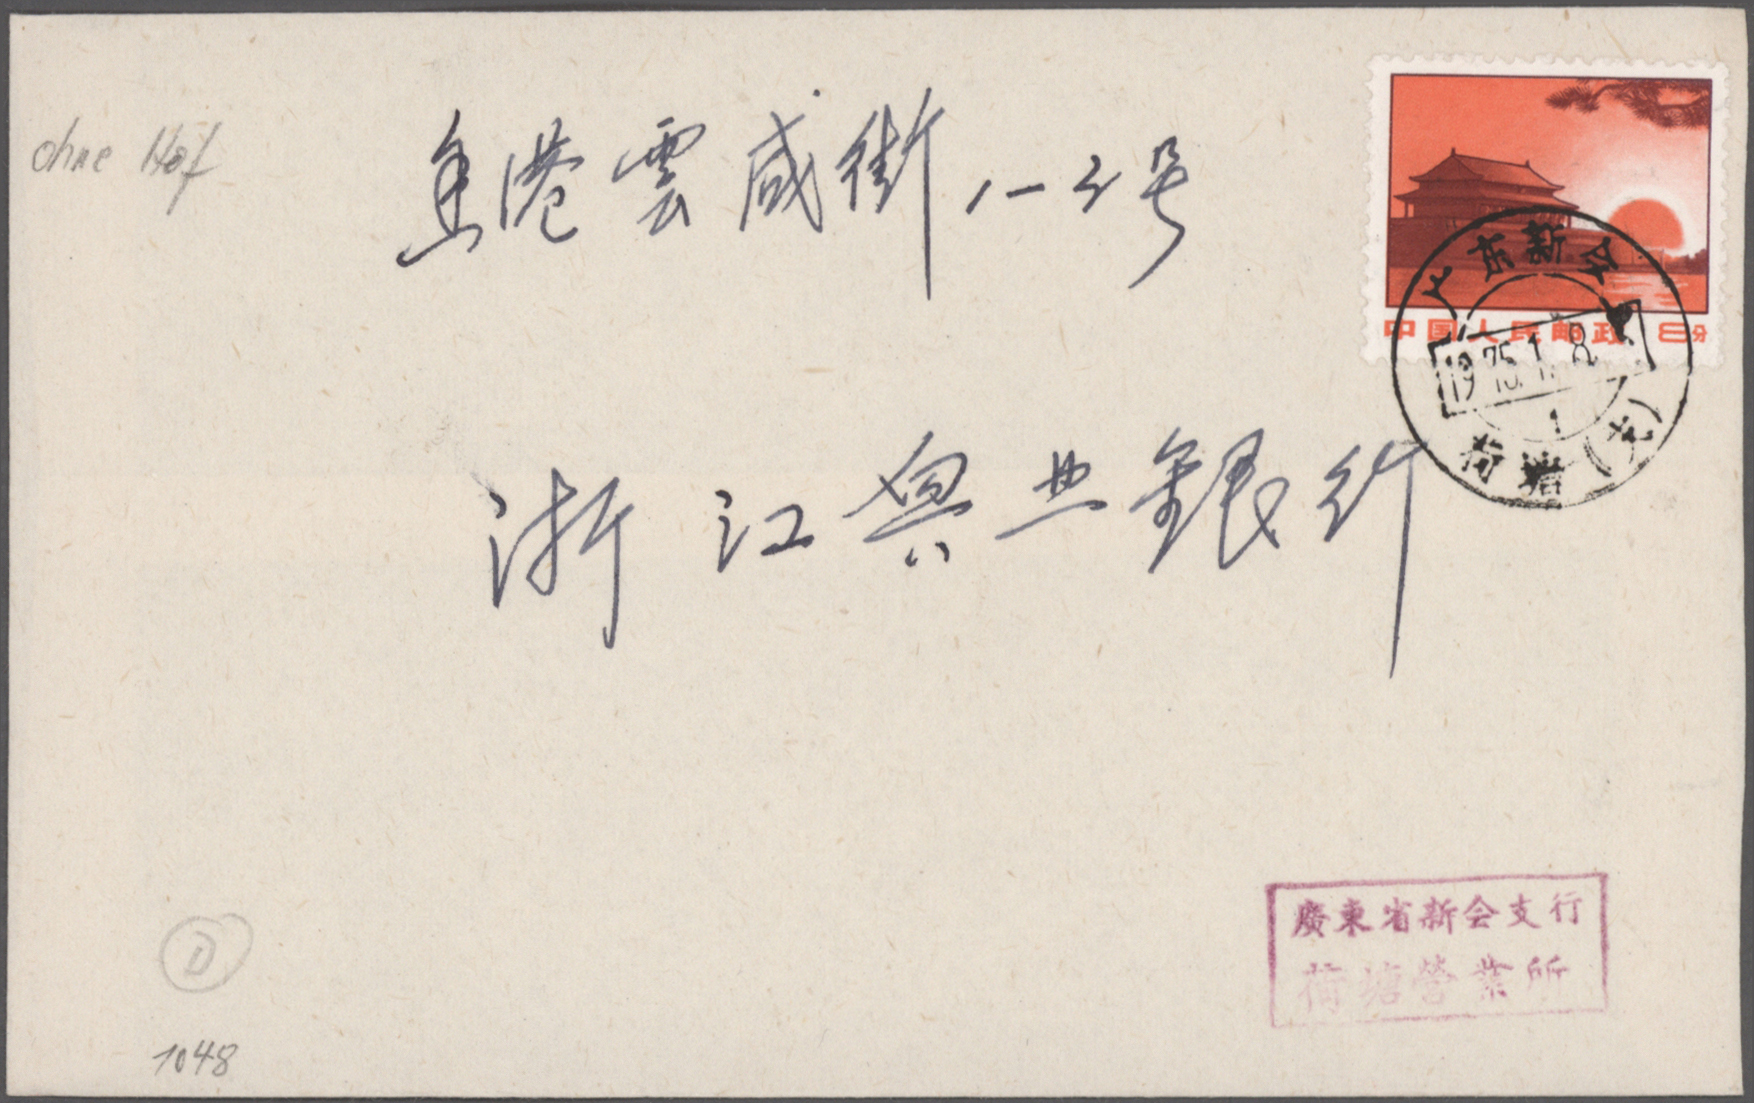 ohne Hof
香港雲咸街1-3号
浙江興业銀行
中国人民邮政 8分
广东新会
1975.1.8
1
荷塘(支)
廣東省新会支行
荷塘营業所
D
1048